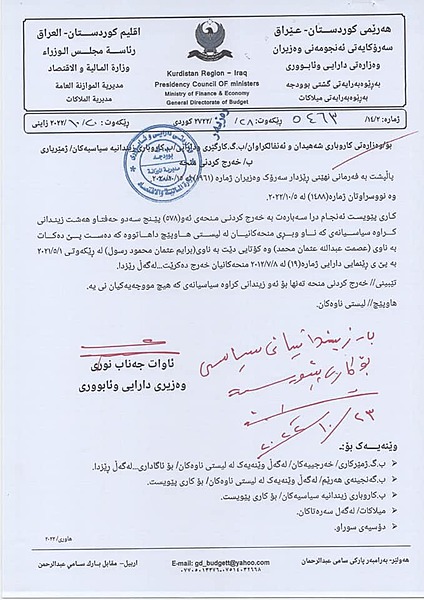 هەرێمی کوردستان-عێراق
سەرۆکایەتی ئەنجومەنی وەزیران
وەزارەتی دارایی وئابووری
بەڕێوەبەرایەتی گشتی بوودجە
بەڕێوەبەرایەتی میلاکات
Kurdistan Region – Iraq
Presidency Council OF ministers
Ministry of Finance & Economy
General Directorate of Budget
اقليم كوردستان- العراق
رئاسة مجلس الوزراء
وزارة المالية و الاقتصاد
مديرية الموازنة العامة
مديرية الملاكات
ژمارە: ١٤/٢/ ٥٤٦٣
ڕێکەوت: ٢٨/ /٢٧٢٢ کوردی
ڕێکەوت: /١٠/٢٠٢٢ زاینی
بۆ/وەزارەتی کاروباری شەهیدان و ئەنفالکراوان/ب.گ.کارگێڕی ودارایی/ب.کاروباری زیندانیە سیاسیەکان/ ژمێریاری
ب/ خەرج کردنی منحە
پاڵپشت بە فەرمانی نهێنی ڕێزدار سەرۆک وەزیران ژمارە (١٩٦١)
وە نووسراوتان ژمارە (١٤٨٨)لە ٢٠٢٢/١٠/٥.
کاری پێویست ئەنجام درا سەبارەت بە خەرج کردنی منحەی ئەو(٥٧٨) پێنج سەدو حەفتاو هەشت زیندانی
کراوە سیاسیانەی کە ناو وبڕی منحەکانیان لە لیستی هاوپێچ داهاتووە کە دەست پێ دەکات
بەناوی (عصمت عبدالله عثمان محمد) وە کۆتایی دێت بە ناوی(برایم عثمان محمود رسول) لە ڕێکەوتی ٢٠٢١/٥/١
بە پێ ی ڕێنمایی دارایی ژمارە(١٩) لە ٢٠١٢/٧/٨ منحەکانیان خەرج دەکرێت...لەگەڵ ڕێزدا.
تێبینی// خەرج کردنی منحە تەنها بۆ ئەو زیندانی کراوە سیاسیانەی کە هیچ مووچەیەکیان نی یە.
هاوپێچ// لیستی ناوەکان.
ئاوات جەناب نوری
وەزیری دارایی وئابووری
سیاسی
بۆ کاری پێویست
٢٠٢٢/١٠/٢٣
وێنەیەک بۆ:-
ب.گ.ژمێرکاری/ خەرجییەکان/ لەگەڵ وێنەیەک لە لیستی ناوەکان/ بۆ ئاگاداری...لەگەڵ ڕێزدا.
ب.گەنجینەی هەرێم/ لەگەڵ وێنەیەک لە لیستی ناوەکان/ بۆ کاری پێویست.
ب.کاروباری زیندانیە سیاسیەکان/ بۆ کاری پێویست.
میلاکات/ لەگەل سەرەتاکان.
دۆسیەی سوراو.
هاوری/ ٢٠٢٢
هەولێر- بەرامبەر پارکی سامی عبدالرحمان
E-mail: gd_budgett@yahoo.com
اربيل- مقابل بارك سامي عبدالرحمن